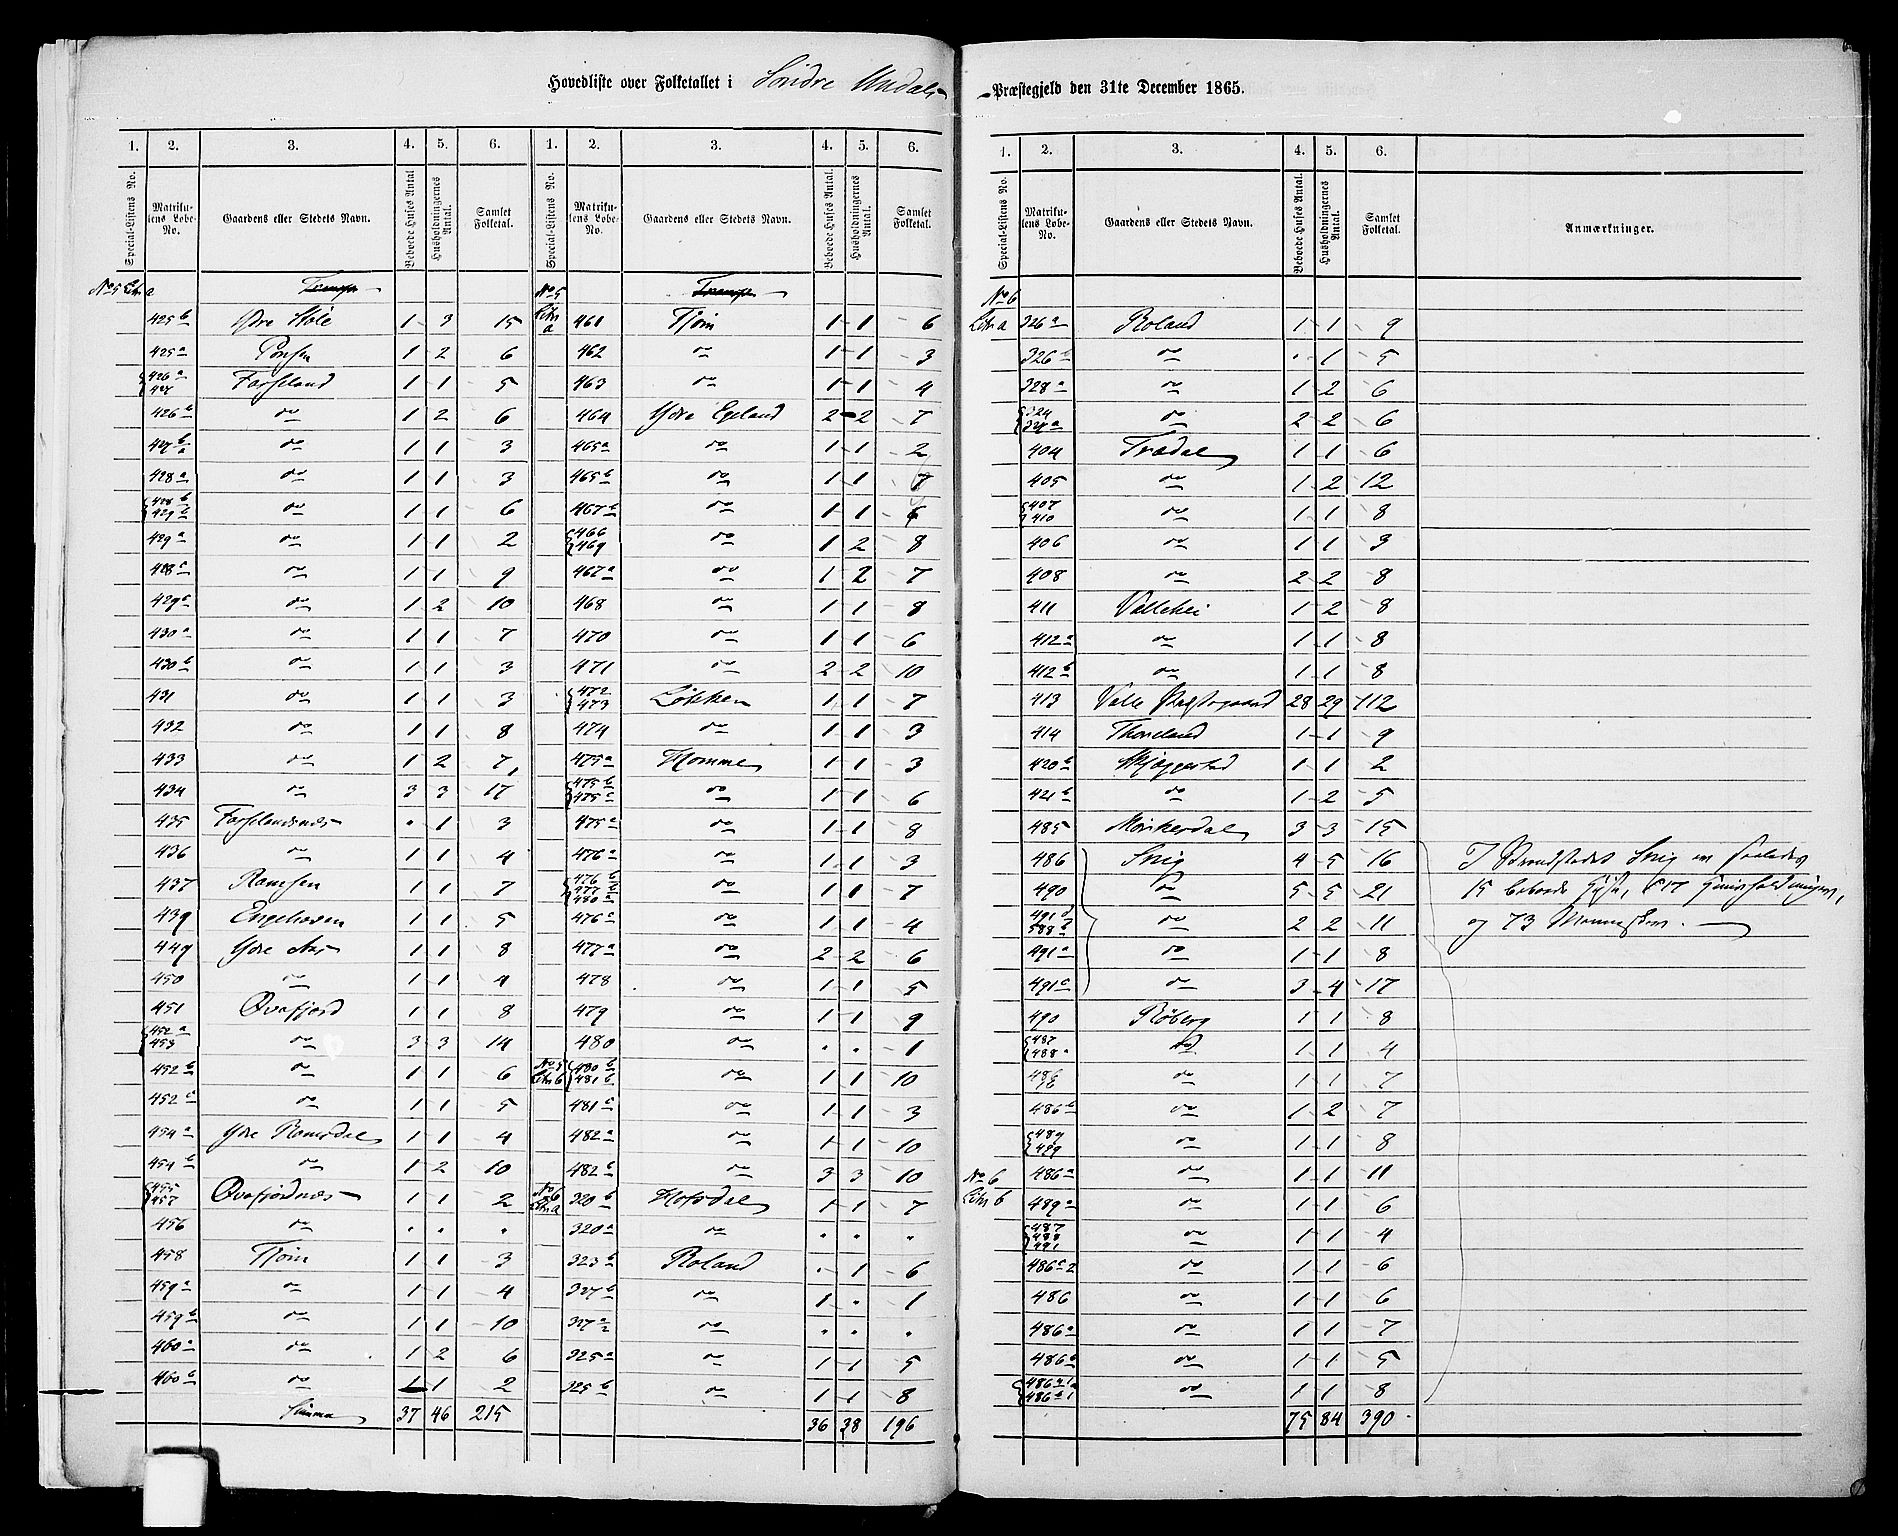 Hovedliste over Folketallet i Søndre Undals- Præstegjeld den 31te December 1865.
1. 2. 3. 4. 5. 6. 1. 2. 3. 4. 5. 6.
Special-Listens No. Matrikulens Løbe-No. Gaardens eller Stedets Navn. Beboede Huses Antal Husholdningernes Antal. Samlet Folketal. Special-Listens No. Matrikulens Løbe-No. Gaardens eller Stedets Navn. Beboede Huses Antal. Husholdningernes Antal. Samlet Folketal.
No 5 Litr a
425 b Ydre Skole 1 3 15
425 a 1 2 6
426 a 427 Farseland 1 1 5
426 b do 1 2 6
427 b do 1 1 3
428 a do 1 1 3
428 b 429 b do 1 1 6
429 a do 1 1 2
428 c do 1 1 9
429 c do 1 2 10
430 a do 1 1 7
430 b do 1 1 3
431 do 1 1 3
432 do 1 1 8
433 do 1 2 7
434 do 3 3 17
435 Farselandsnes " 1 3
436 do 1 1 4
437 Ramsen 1 1 7
439 Engehaven 1 1 5
449 Ydre Aas 1 1 8
450 do 1 1 4
451 Øvafjord 1 1 8
452 a 453 do 3 3 14
452 b do 1 1 6
452 c do 1 1 5
454 a Ydre Romsdal 1 1 4
454 b do 1 2 10
455 457 Øvafjordnes 1 1 2
456 do " " "
458 Tjøm 1 1 3
459 a do 1 1 4
459 b do 1 1 10
460 a do 1 2 6
460 b do 1 1 2
Summa 37 46 215
No 5 Litr a
461 Tjøm 1 1 6
462 do 1 1 3
463 do 1 1 4
464 Ydre Egeland 2 2 7
465 a do 1 1 2
465 b do 1 1 7
467 b do 1 1 6
466 469 do 1 2 8
467 a do 1 2 7
468 do 1 1 8
470 do 1 1 6
471 do 2 2 10
472 473 Løkken 1 1 7
474 do 1 1 3
475 a Homme 1 1 3
475 b 475 c do 1 1 6
475 a do 1 1 8
476 a do 1 1 3
476 b 477 b 480 a do 1 1 7
476 a do 1 1 4
477 a do 2 2 6
478 do 1 1 5
479 do 1 1 9
480 do " " 1
No 5 Litr b 480 b 481 b do 1 1 10
481 c do 1 1 3
482 a do 1 1 10
482 b do 3 3 10
No 6 Litr a 320 b Hofsdal 1 1 7
320 a do " " "
323 b Roland " 1 6
327 b do 1 " 1
do " " "
325 a do 1 1 5
325 b do 1 1 8
36 38 196
1. 2. 3. 4. 5. 6.
Special-Listens No. Matrikulens Løbe-No. Gaardens eller Stedets Navn. Beboede Huses Antal. Husholdningernes Antal. Samlet Folketal. Anmærkninger.
No 6
Litr a 326 a Roland 1 1 9
326 b do " 1 5
328 a do 1 2 6
324 do 2 2 6
404 Trædal 1 1 6
405 do 1 2 12
407 410 do 1 1 8
406 do 1 1 3
408 do 2 2 8
411 Vallehei 1 2 8
412 a do 1 1 8
412 b do 1 1 8
413 Valle Præstegaard 28 29 112
414 Thorseland 1 1 9
420 b Skjæggestad 1 1 2
421 b do 1 2 5
485 Mørkerdal 3 3 15
486 Snig 4 5 16 I Strandstedet Snig er saaledes
490 do 5 5 21 15 beboede Huse, 17 Huusholdninger,
491 d 588 b do 2 2 11 og 73 Mennesker.
491 a do 1 1 8
491 c do 3 4 17
490 Røberg 1 1 8
487 488 a do 1 1 4
do 1 1 7
486 b do 1 2 7
489 do 1 1 8
No 6 486 a do 1 1 11
Litr b 489 a do 1 1 6
487 488 491 do 1 1 4
486 a 2 do 1 1 6
486 do 1 1 6
486 a do 1 1 7
486 b do 1 1 5
do 1 1 8
75 84 390